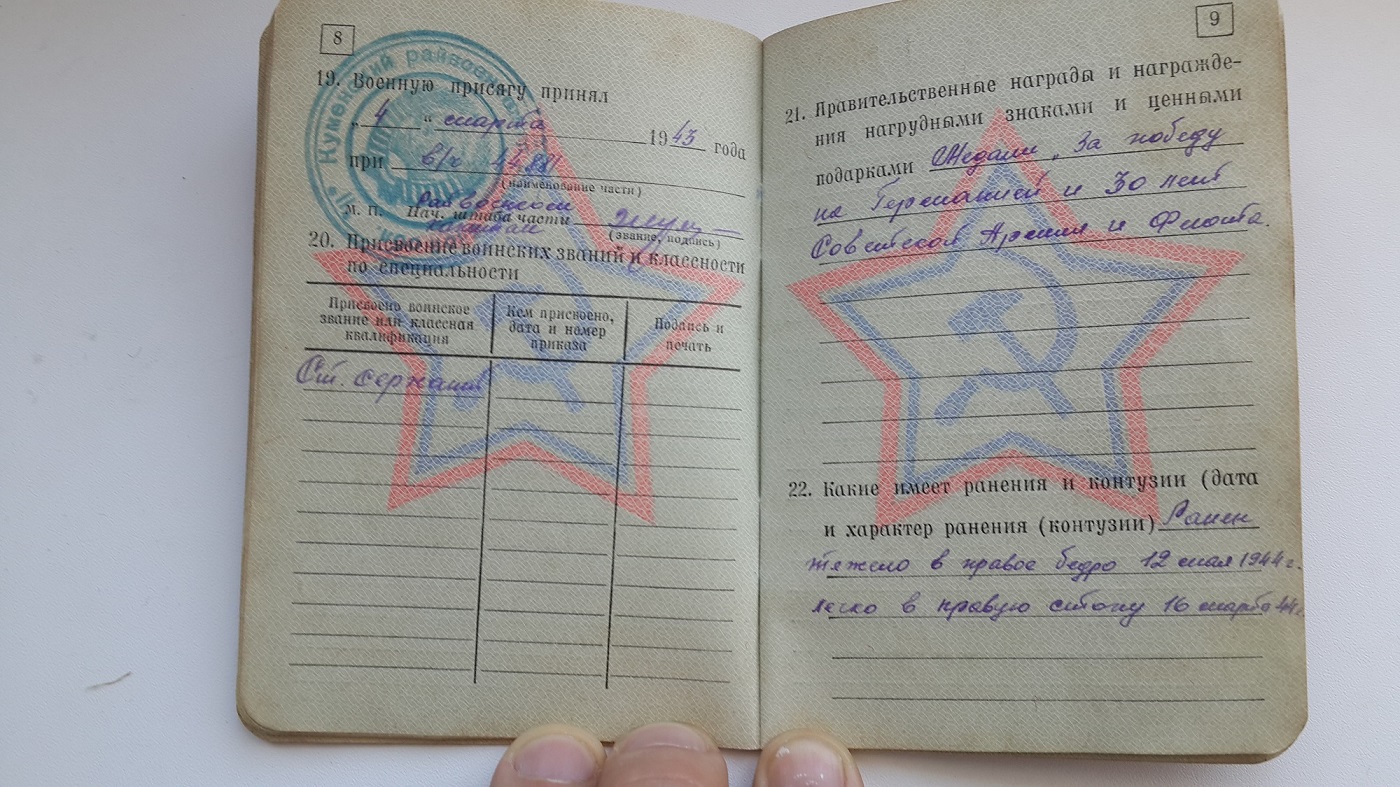 8
19. Военную присягу принял
„ 4 “ марта 1943 года
при в/ч 44881
(наименование части)
Райвоенком
М. П. Нач. штаба части
(звание, подпись)
20. Присвоение воинских званий и классности
по специальности
Присвоено воинское звание или классная квалификация
Кем присвоено, дата и номер приказа
Подпись и печать
Ст. сержант
9
21. Правительственные награды и награжде-
ния нагрудными знаками и ценными
подарками Медали „За победу
на Германией и 30 лет
Советской Армии и Флота.
22. Какие имеет ранения и контузии (дата
и характер ранения (контузии) Ранен
тяжело в правое бедро 12 мая 1944 г.
легко в правую стопу 16 марта 44 г.